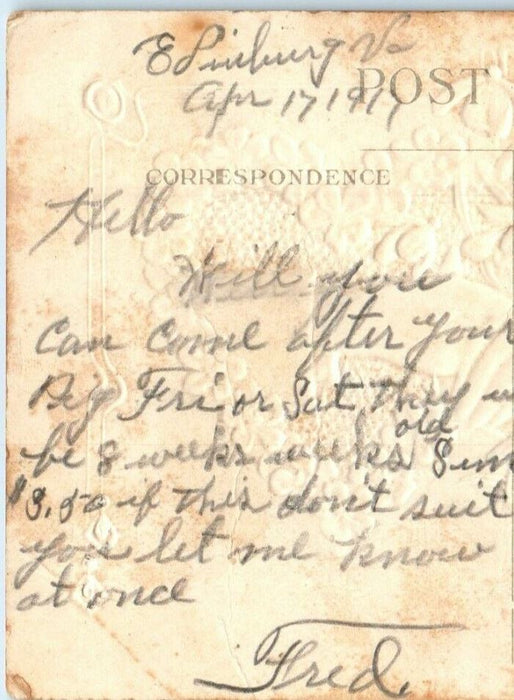 Edinburg Va
Apr 17 1911
POST
CORRESPONDENCE
Hello
Well you
can come after your
Pig Fri or Sat, they w
be 8 weeks weeks old Sun
$3.50 if this don't suit
you let me know
at once
Fred.